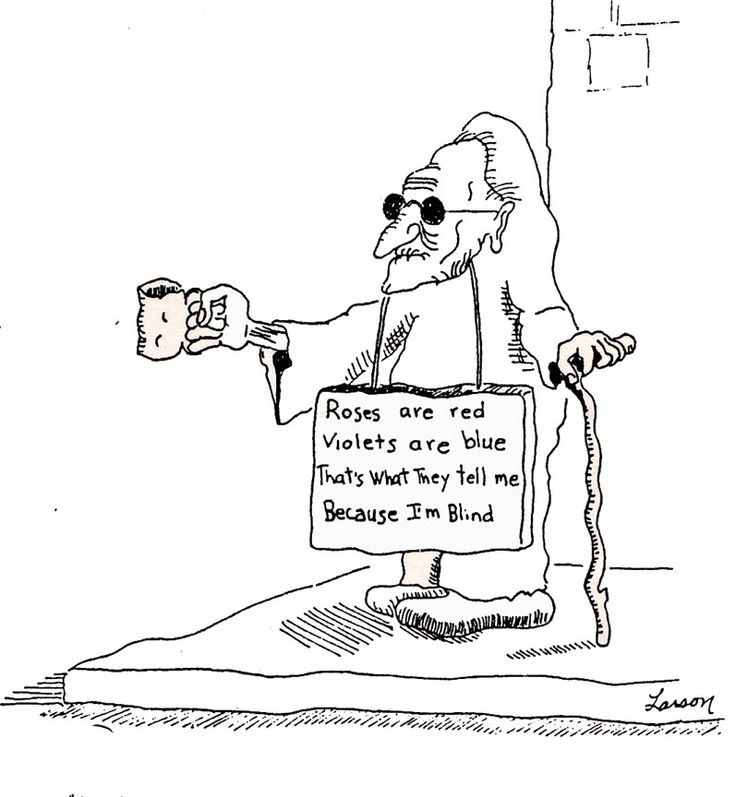 Roses are red
Violets are blue
That's What They tell me
Because I'm Blind
Larson